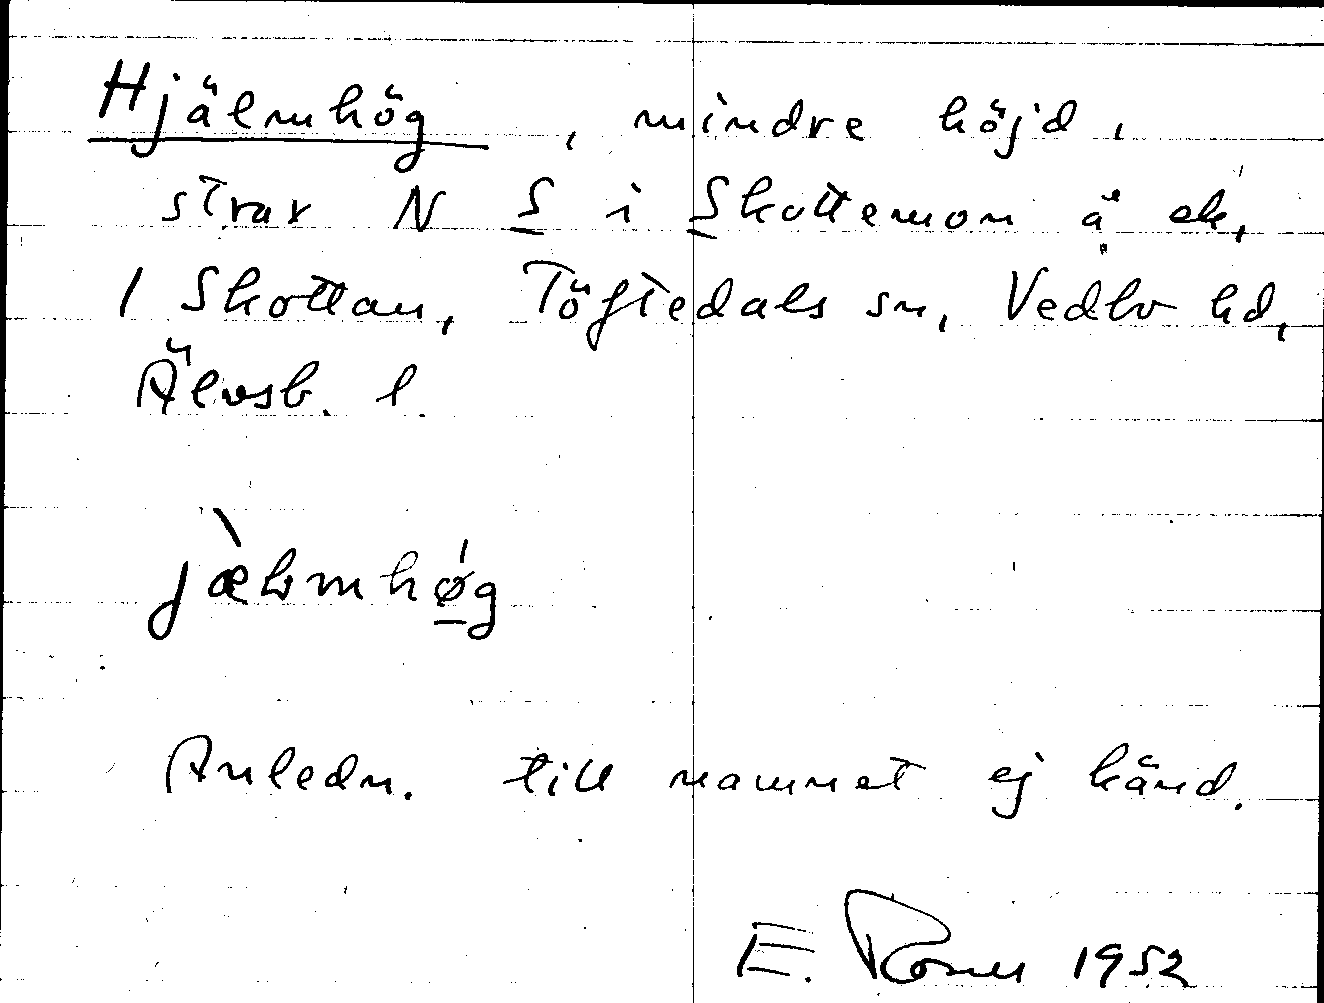 Hjälmhög, mindre höjd,
strax N S i Skottemon å ek,
1 Skottan, Töftedals sn, Vedbo hd,
Älvsb. l.
jæ̀lmhǿg
Anledn. till namnet ej känd.
E. 1952